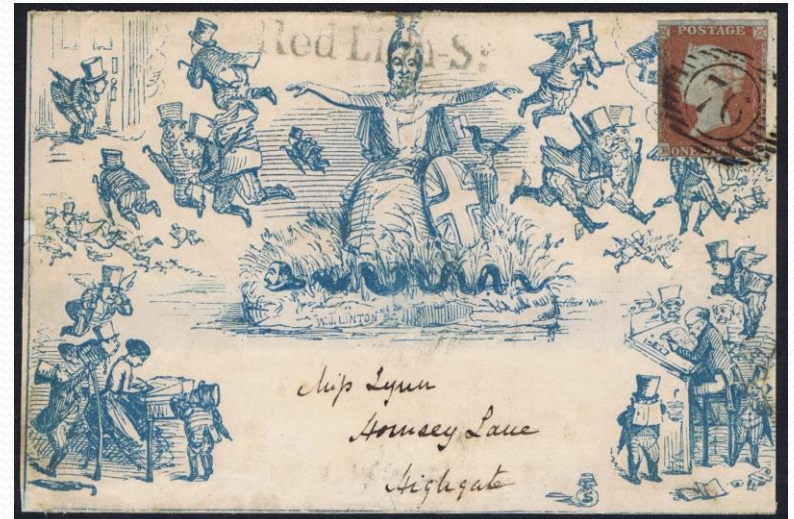 Red-Lion-St
POSTAGE
W. J. LINTON
Miss Lynn
Hornsey Lane
Highgate
S